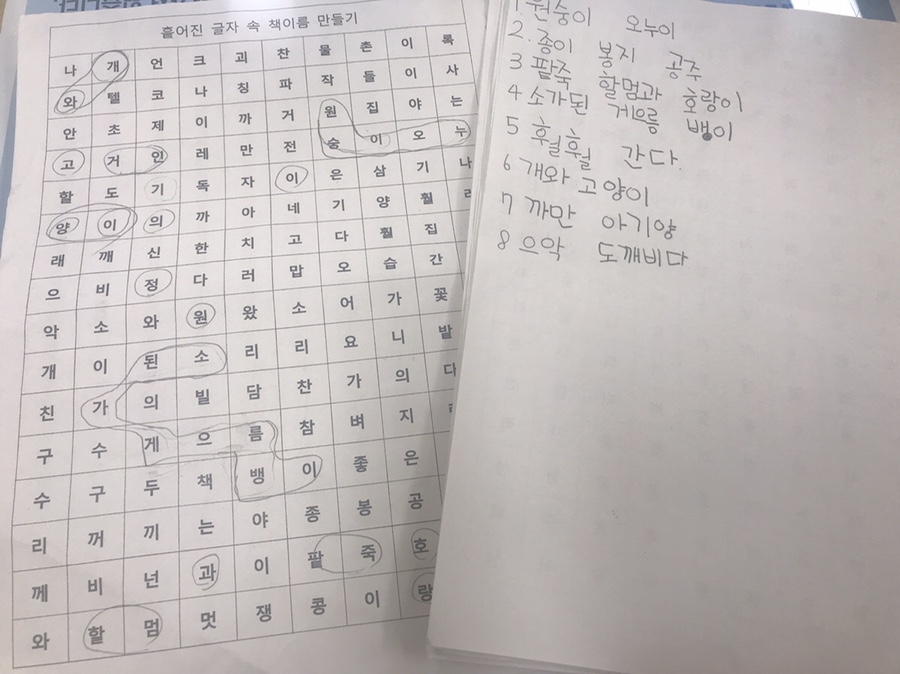 흩어진 글자 속 책이름 만들기
나 개 언 크 괴 찬 물 촌 이 록
와 텔 코 나 칭 파 작 들 이 사
안 초 제 이 까 거 원 집 야 는
고 거 인 레 만 전 숭 이 오 누
할 도 기 독 자 이 은 삼 기 나
양 이 의 까 아 네 기 양 훨
래 깨 신 한 치 고 다 훨 집
으 비 정 다 러 맙 오 습 간
악 소 와 원 왔 소 어 가 꽃
개 이 된 소 리 리 요 니 밭
친 가 의 빌 담 찬 가 의 다
구 수 게 으 름 참 벼 지
수 구 두 책 뱅 이 좋 은
리 꺼 끼 는 야 종 봉 공
께 비 넌 과 이 팥 죽 호
와 할 멈 멋 쟁 콩 이 랑
1 원숭이 오누이
2. 종이 봉지 공주
3 팥죽 할멈과 호랑이
4 소가된 게으름 뱅이
5 훨훨 간다.
6 개와 고양이
7 까만 아기양
8 으악 도깨비다